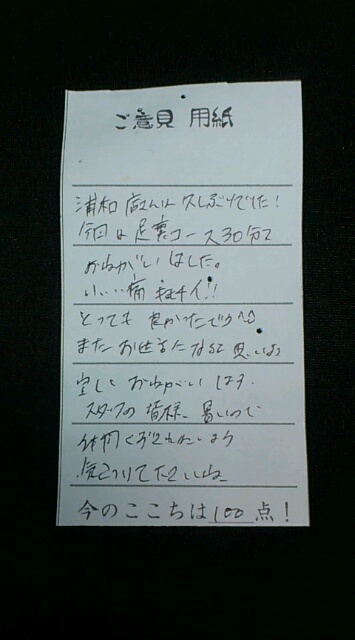 ご意見 用紙
浦和 店さんは 久しぶりでした！
今回は 足裏コース30分で
おねがいしました。
いい痛 キモチイ!!
とっても 良かったです^^
また お世話になると思いますが
宜しく おねがいします。
スタッフの 皆様 暑いので
体調くずされないよう
気をつけて下さいね
今のここちは100点！